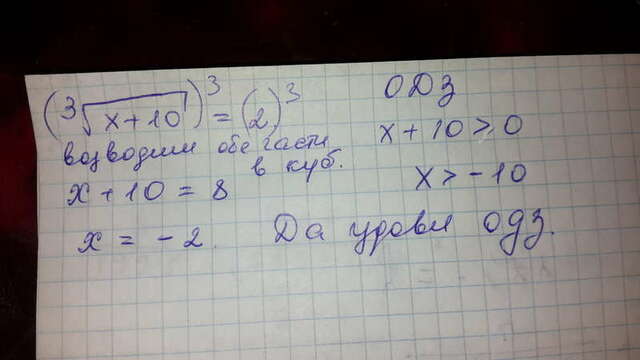 (∛(x+10))³ = (2)³
возводим обе части
в куб.
x + 10 = 8
x = -2.
ОДЗ
x + 10 > 0
x > -10
Да удовл ОДЗ.